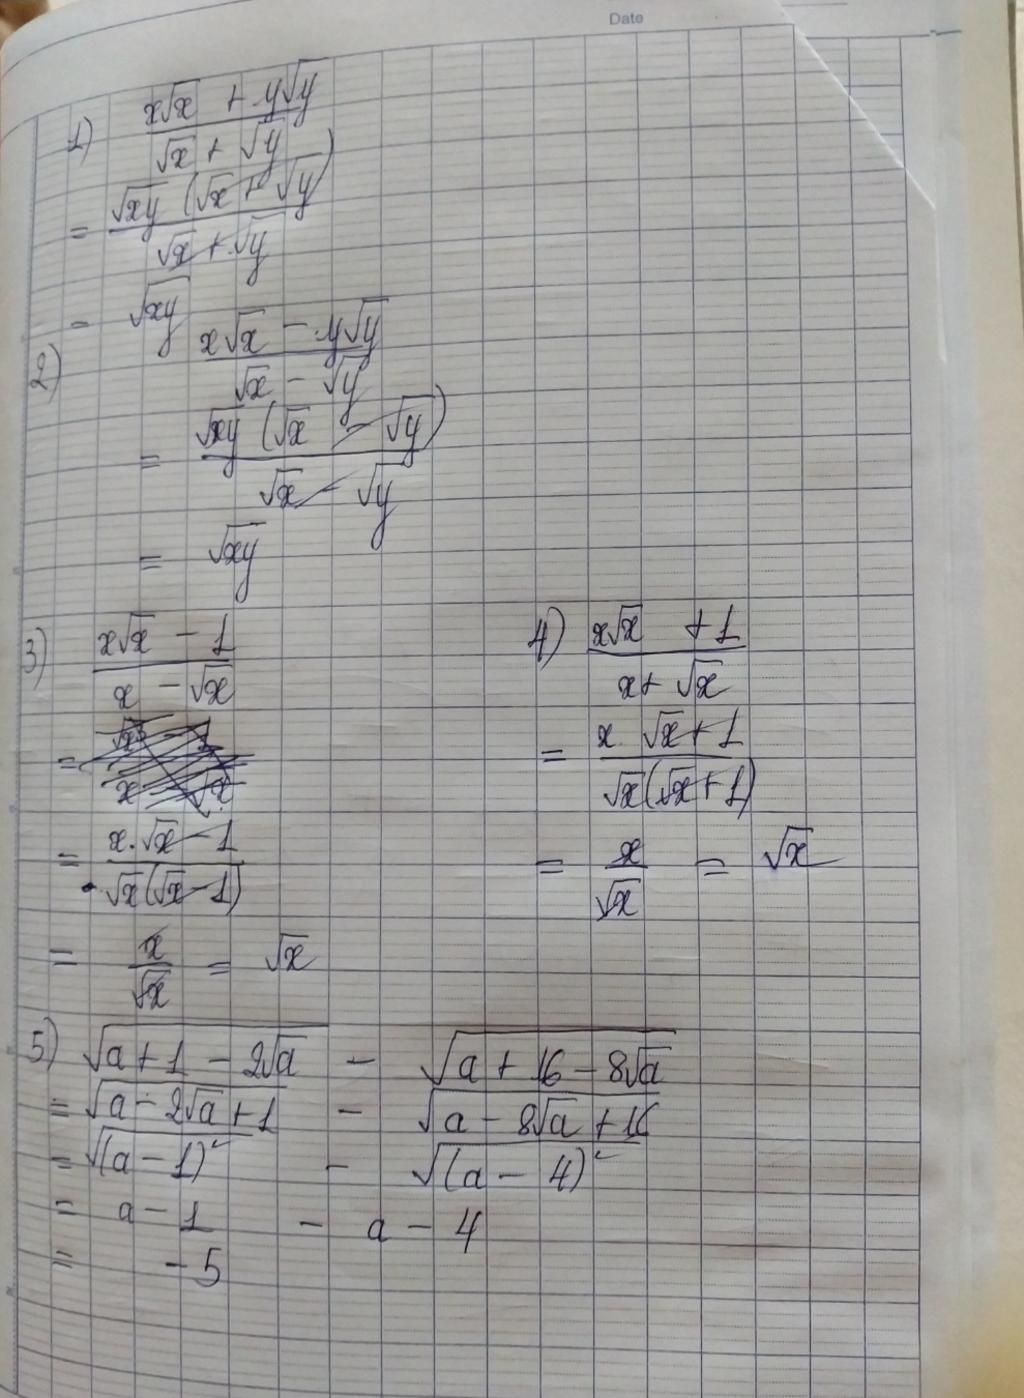 Date
1) (x√x + y√y)/(√x + √y)
= (√xy (√x + √y))/(√x + √y)
= √xy
2) (x√x - y√y)/(√x - √y)
= (√xy (√x - √y))/(√x - √y)
= √xy
3) (x√x - 1)/(x - √x)
= (x.√x - 1)/(√x(√x - 1))
= x/√x = √x
4) (x√x + 1)/(x + √x)
= (x.√x + 1)/(√x(√x + 1))
= x/√x = √x
5) √(a + 1 - 2√a) - √(a + 16 - 8√a)
= √(a - 2√a + 1) - √(a - 8√a + 16)
= √((a - 1)²) - √((a - 4)²)
= a - 1 - a - 4
= -5